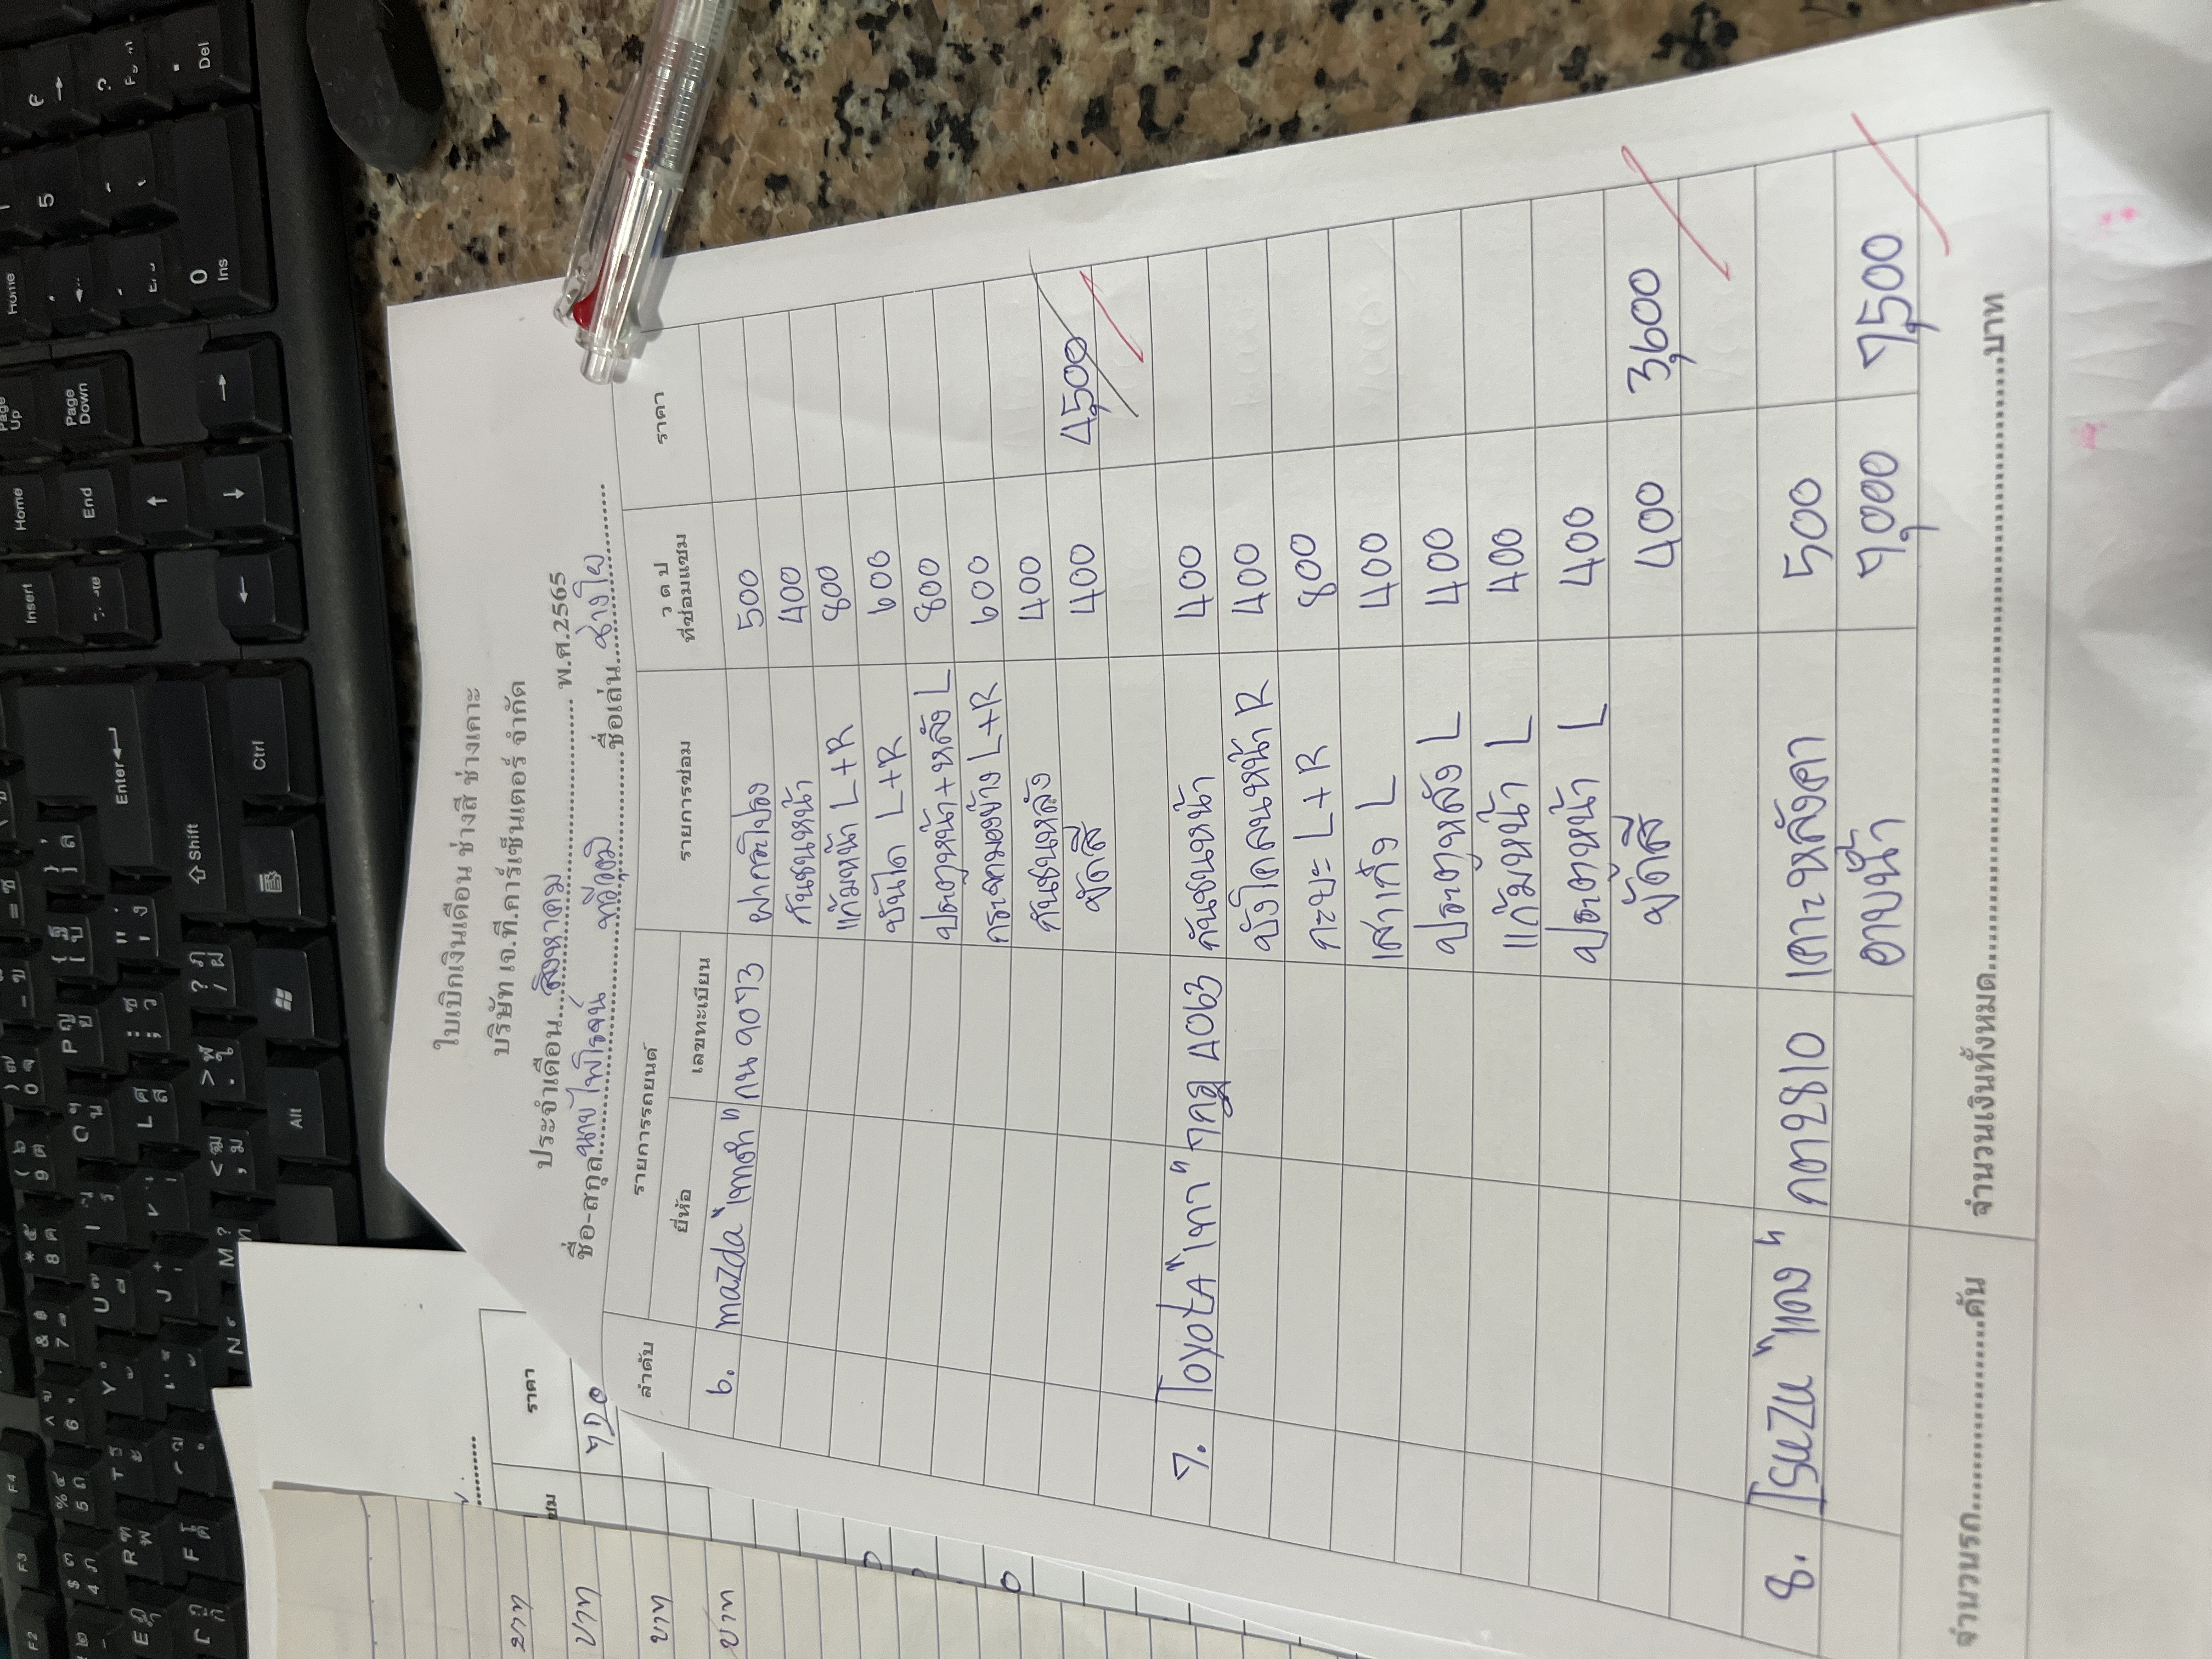 ใบเบิกเงินเดือน ช่างสี ช่างเคาะ
บริษัท เจ.ที.คาร์เซ็นเตอร์ จำกัด
ประจำเดือน...สิงหาคม...พ.ศ.2565
ชื่อ-สกุล...นายไพโรจน์...ชื่อเล่น...ช่างโย...
ลำดับ รายการรถยนต์ รายการซ่อม ว ด ป ที่ซ่อมแซม ราคา
ยี่ห้อ เลขทะเบียน
6. mazda "เทาดำ" กน 9073 ฝากระโปรง 500
กันชนหน้า 400
แก้มหน้า L+R 800
บันได L+R 600
ประตูหน้า+หลัง L 800
กระจกมองข้าง L+R 600
กันชนหลัง 400
ขัดสี 400 4,500
7. ToyotA "เทา" 7กฎ 4063 กันชนหน้า 400
บังโคลนหน้า R 400
กะบะ L+R 800
เสาเก๋ง L 400
ประตูหลัง L 400
แก้มหน้า L 400
ประตูหน้า L 400
ขัดสี 400 3,600
8. ISUZU "แดง" กต 2810 เคาะหลังคา 500
อาบน้ำ 7,000 7,500
จำนวนรถ...คัน จำนวนเงินทั้งหมด...บาท
ราคา
บาท
บาท
บาท
บาท
Insert
Home
Page Up
Del
End
Page Down
Enter
Shift
Ctrl
Alt
0 Ins
5
F2
F3
F4